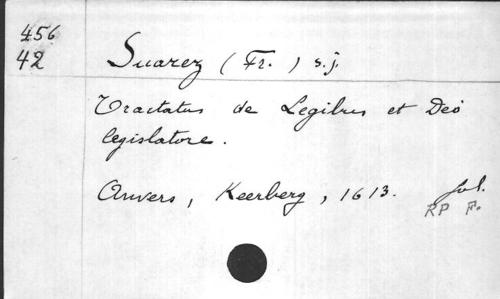 456
42
Suarez (Fr.) s.j.
Tractatus de Legibus et Deo
legislatore.
Anvers, Keerberg, 1613. fol.
RP F.